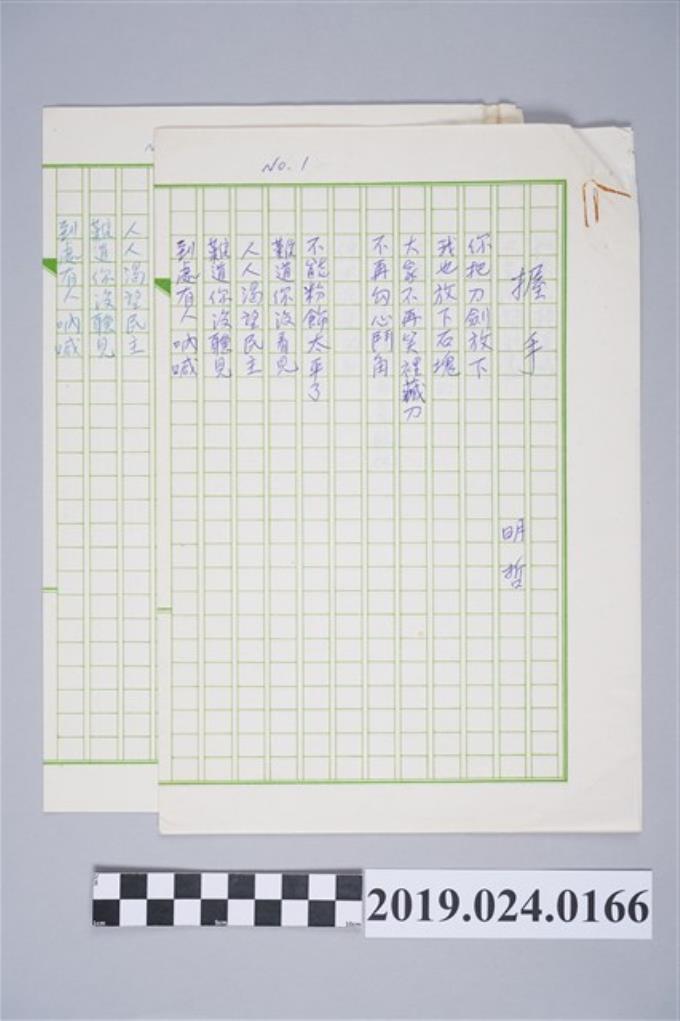 No. 1
握手
明哲
你把刀劍放下
我也放下石塊
大家不再笑裡藏刀
不再勾心鬥角
不能粉飾太平了
難道你沒看見
人人渴望民主
難道你沒聽見
到處有人吶喊
人人渴望民主
難道你沒聽見
到處有人吶喊
1cm
5cm
10cm
2019.024.0166